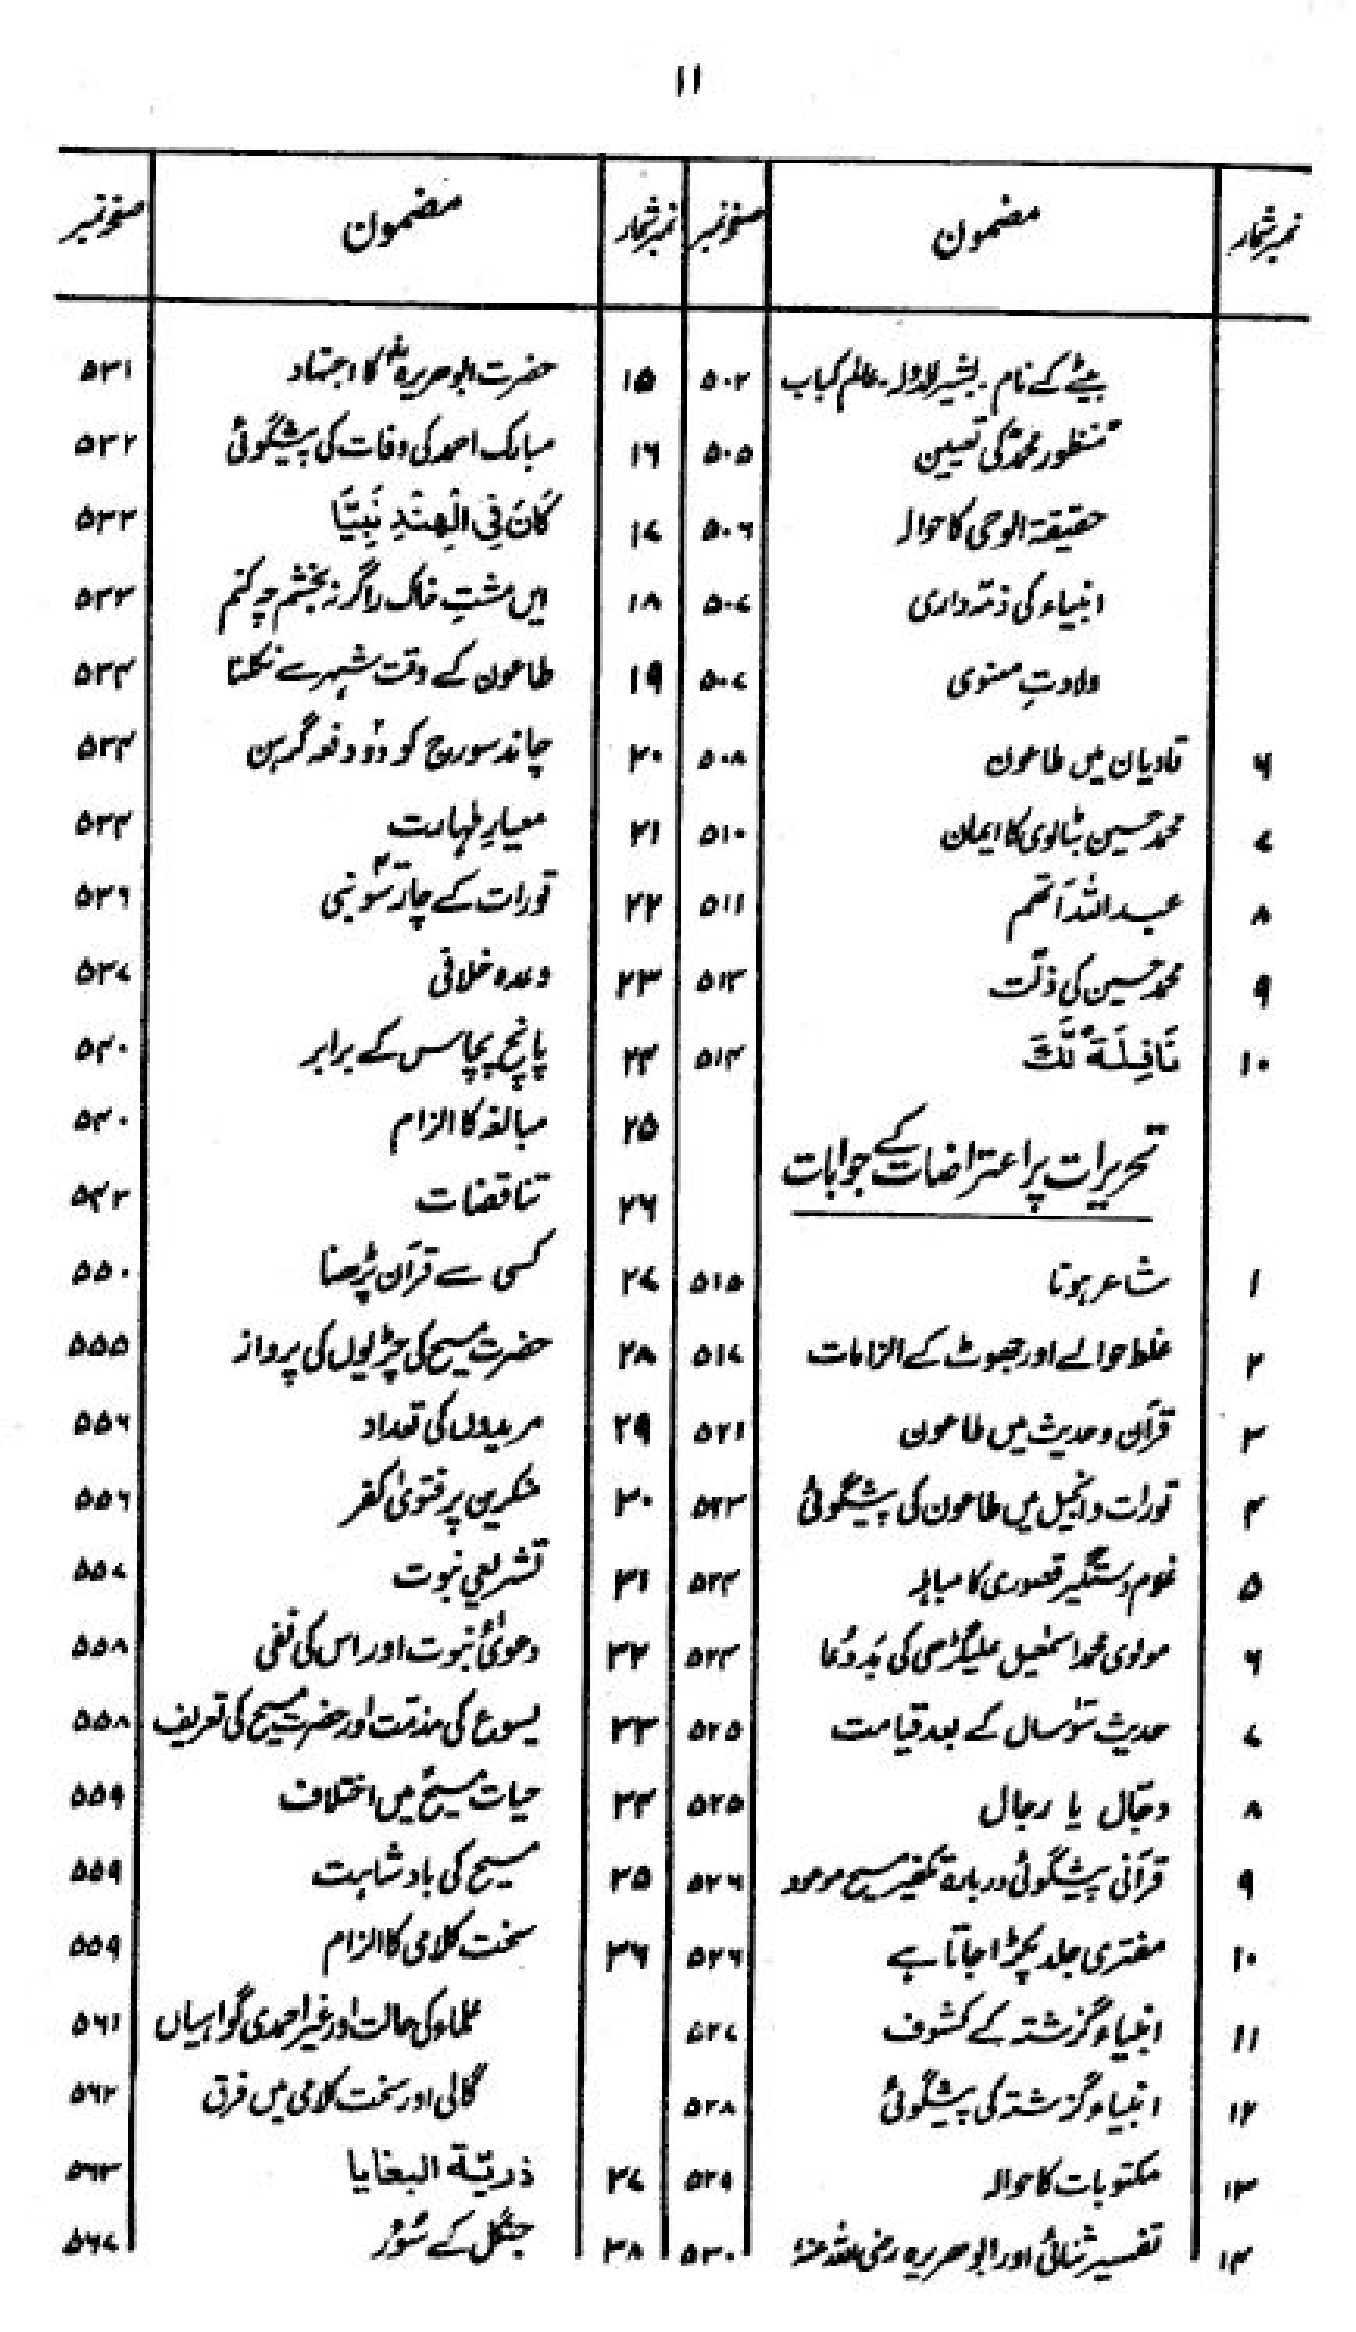 ۱۱
نمبر شمار مضمون صفحہ نمبر
بیٹے کے نام ۔ بشیر الدولہ ۔ عالم کباب ۵۰۲
منظور محمد کی تعیین ۵۰۵
حقیقۃ الوحی کا حوالہ ۵۰۶
انبیاء کی ذمّہ داری ۵۰۷
ولادتِ معنوی ۵۰۷
۶ قادیان میں طاعون ۵۰۸
۷ محمد حسین بٹالوی کا ایمان ۵۱۰
۸ عبداللہ آتھم ۵۱۱
۹ محمد حسین کی ذلّت ۵۱۳
۱۰ نَافِلَةً لَّكَ ۵۱۴
تحریرات پر اعتراضات کے جوابات
۱ شاعر ہونا ۵۱۵
۲ غلط حوالے اور جھوٹ کے الزامات ۵۱۷
۳ قرآن و حدیث میں طاعون ۵۲۱
۴ تورات و انجیل میں طاعون کی پیشگوئی ۵۲۳
۵ غلام دستگیر قصوری کا مباہلہ ۵۲۴
۶ مولوی محمد اسمٰعیل علیگڑھی کی بَد دُعا ۵۲۴
۷ حدیث سَو سال کے بعد قیامت ۵۲۵
۸ دجّال یا رجال ۵۲۵
۹ قرآنی پیشگوئی دربارۂ تکفیر مسیح موعود ۵۲۶
۱۰ مفتری جلد پکڑا جاتا ہے ۵۲۶
۱۱ انبیاء گزشتہ کے کشوف ۵۲۷
۱۲ انبیاء گزشتہ کی پیشگوئی ۵۲۸
۱۳ مکتوبات کا حوالہ ۵۲۹
۱۴ تفسیر ثنائی اور ابوہریرہ رضی اللہ عنہٗ ۵۳۰
نمبر شمار مضمون صفحہ نمبر
۱۵ حضرت ابوہریرہؓ کا اجتہاد ۵۳۱
۱۶ مبارک احمد کی وفات کی پیشگوئی ۵۳۲
۱۷ كَانَ فِی الْهِنْدِ نَبِيًّا ۵۳۳
۱۸ ایں مشتِ خاک را گر نہ بخشم چہ کنم ۵۳۳
۱۹ طاعون کے وقت شہر سے نکلنا ۵۳۴
۲۰ چاند سورج کو دو دفعہ گرہن ۵۳۴
۲۱ معیارِ طہارت ۵۳۴
۲۲ تورات کے چار سو نبی ۵۳۶
۲۳ وعدہ خلافی ۵۳۷
۲۴ پانچ پچاس کے برابر ۵۴۰
۲۵ مبالغہ کا الزام ۵۴۰
۲۶ تناقضات ۵۴۲
۲۷ کسی سے قرآن پڑھنا ۵۵۰
۲۸ حضرت مسیح کی چڑیوں کی پرواز ۵۵۵
۲۹ مریدوں کی تعداد ۵۵۶
۳۰ منکرین پر فتویٰ کفر ۵۵۶
۳۱ تشریعی نبوت ۵۵۷
۳۲ دعویٰٔ نبوت اور اس کی نفی ۵۵۸
۳۳ یسوع کی مذمّت اور حضرت مسیح کی تعریف ۵۵۸
۳۴ حیات مسیحؑ میں اختلاف ۵۵۹
۳۵ مسیح کی بادشاہت ۵۵۹
۳۶ سخت کلامی کا الزام ۵۵۹
علماء کی حالت اور غیر احمدی گواہیاں ۵۶۱
گالی اور سخت کلامی میں فرق ۵۶۲
۳۷ ذریّة البغایا ۵۶۳
۳۸ جنگل کے سُؤر ۵۶۷